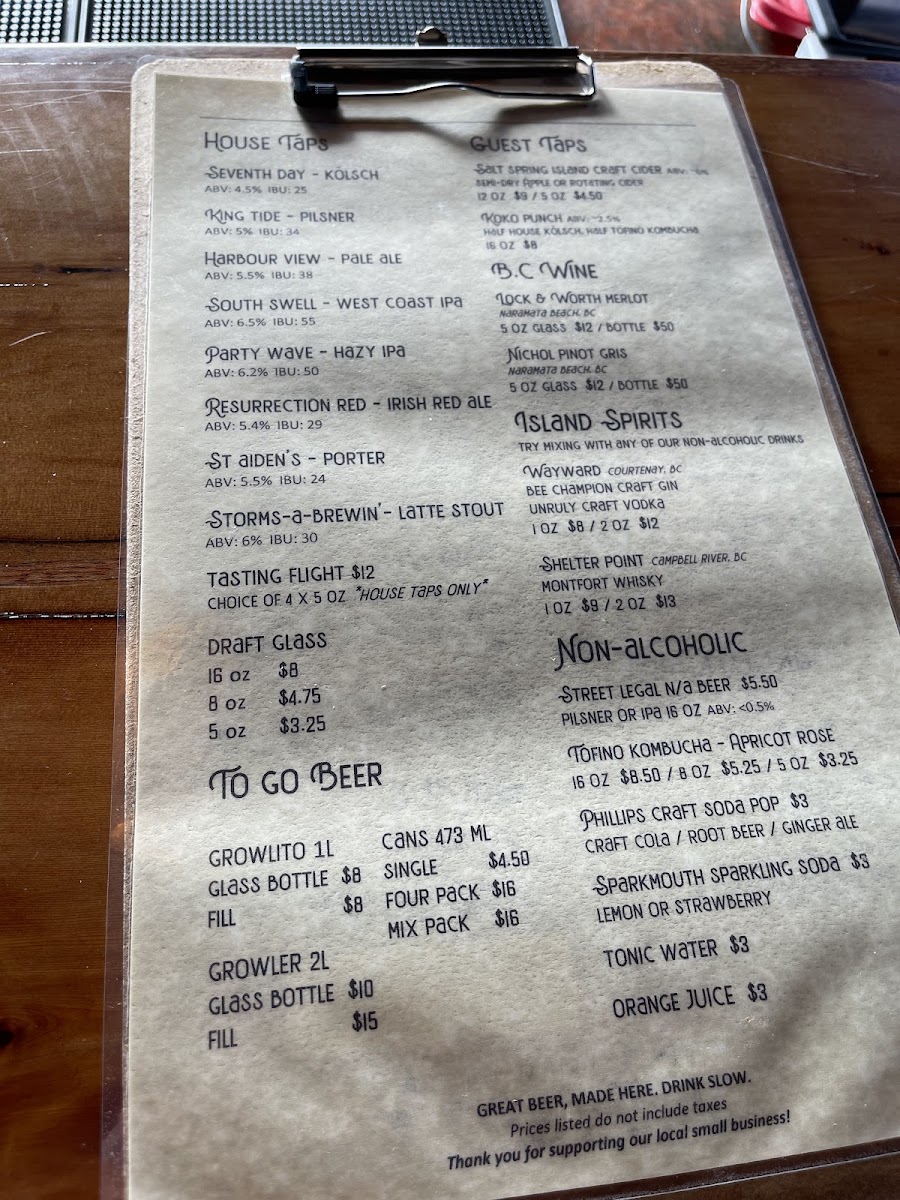 House Taps
Seventh Day - Kölsch
ABV: 4.5% IBU: 25
King Tide - Pilsner
ABV: 5% IBU: 34
Harbour View - Pale Ale
ABV: 5.5% IBU: 38
South Swell - West Coast IPA
ABV: 6.5% IBU: 55
Party Wave - Hazy IPA
ABV: 6.2% IBU: 50
Resurrection Red - Irish Red Ale
ABV: 5.4% IBU: 29
St Aiden's - Porter
ABV: 5.5% IBU: 24
Storms-a-Brewin'- Latte Stout
ABV: 6% IBU: 30
Tasting Flight $12
Choice of 4 x 5 oz *House Taps Only*
Draft Glass
16 oz $8
8 oz $4.75
5 oz $3.25
To Go Beer
Growlito 1L
Glass Bottle $8
Fill $8
Growler 2L
Glass Bottle $10
Fill $15
Cans 473 ml
Single $4.50
Four Pack $16
Mix Pack $16
Guest Taps
Salt Spring Island Craft Cider ABV:
Semi-Dry Apple or Rotating Cider
12 oz $9 / 5 oz $4.50
Koko Punch ABV: ~2.5%
Half House Kölsch, Half Tofino Kombucha
16 oz $8
B.C Wine
Lock & Worth Merlot
Naramata Beach, BC
5 oz Glass $12 / Bottle $50
Nichol Pinot Gris
Naramata Beach, BC
5 oz Glass $12 / Bottle $50
Island Spirits
Try mixing with any of our non-alcoholic drinks
Wayward Courtenay, BC
Bee Champion Craft Gin
Unruly Craft Vodka
1 oz $8 / 2 oz $12
Shelter Point Campbell River, BC
Montfort Whisky
1 oz $9 / 2 oz $13
Non-Alcoholic
Street Legal N/A Beer $5.50
Pilsner or IPA 16 oz ABV: <0.5%
Tofino Kombucha - Apricot Rose
16 oz $8.50 / 8 oz $5.25 / 5 oz $3.25
Phillips Craft Soda Pop $3
Craft Cola / Root Beer / Ginger Ale
Sparkmouth Sparkling Soda $3
Lemon or Strawberry
Tonic Water $3
Orange Juice $3
GREAT BEER, MADE HERE. DRINK SLOW.
Prices listed do not include taxes
Thank you for supporting our local small business!